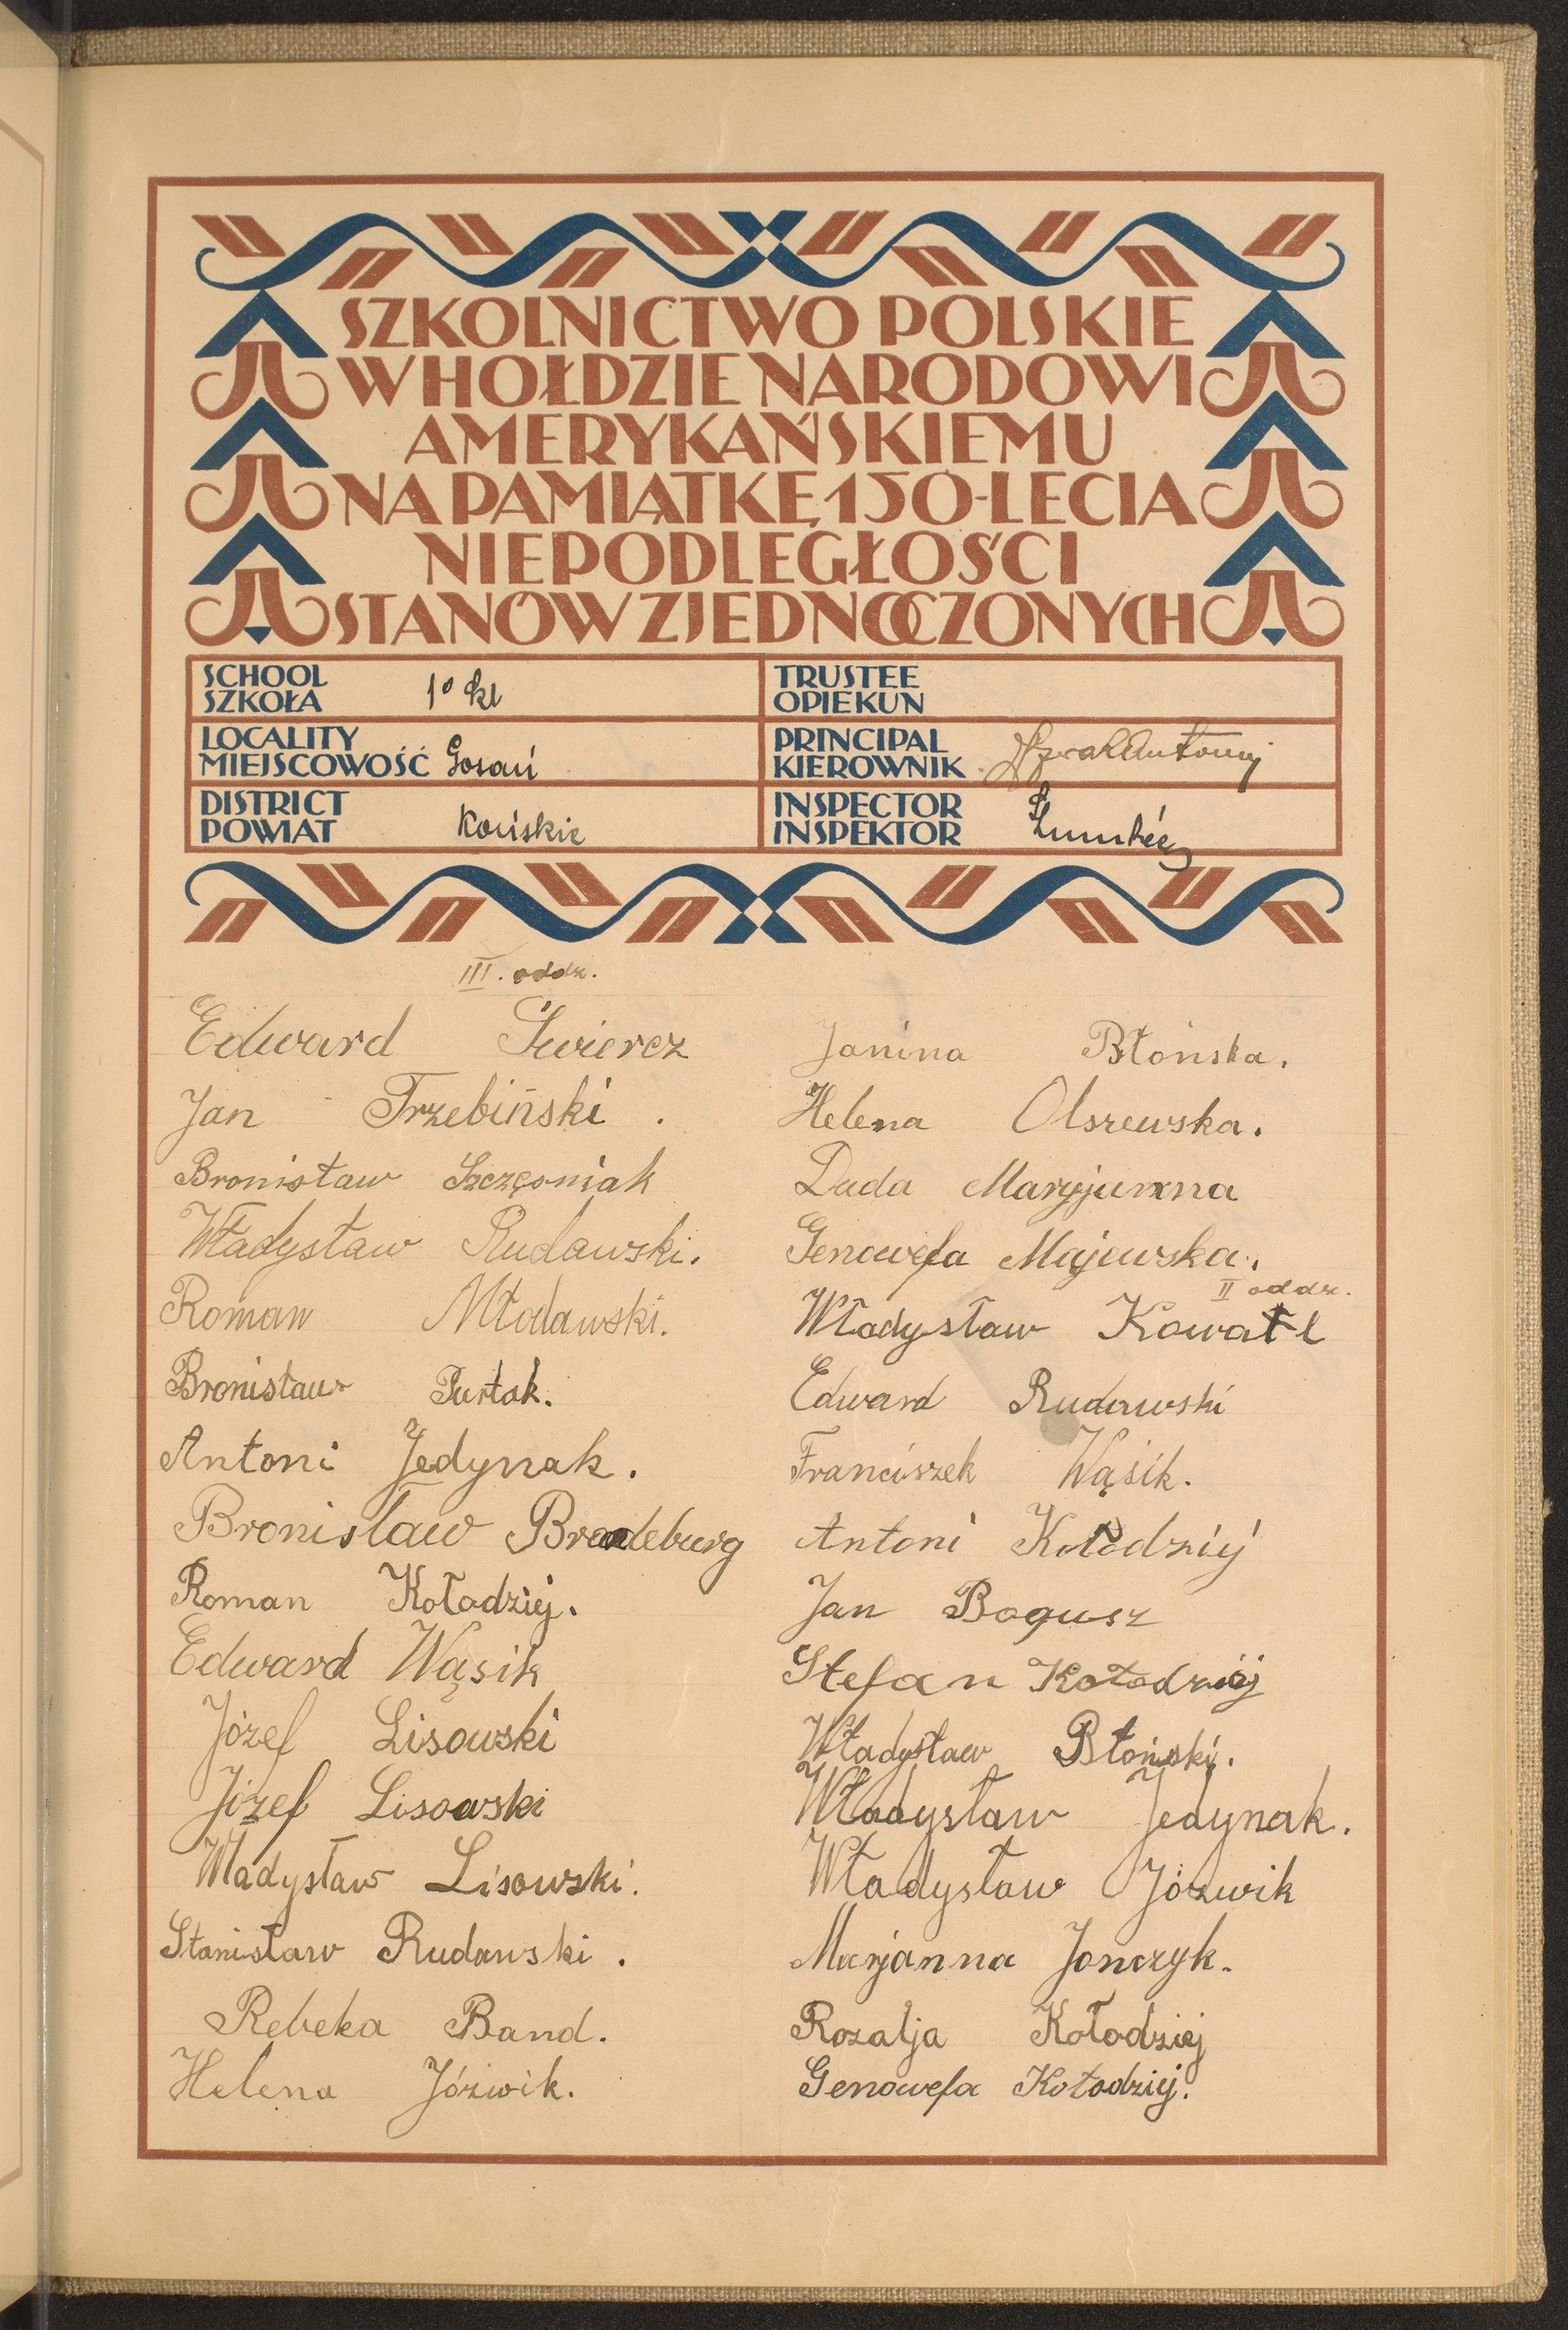 SZKOLNICTWO POLSKIE
W HOŁDZIE NARODOWI
AMERYKAŃSKIEMU
NA PAMIĄTKĘ 150-LECIA
NIEPODLEGŁOŚCI
STANÓW ZJEDNOCZONYCH
SCHOOL
SZKOŁA 1º kl
TRUSTEE
OPIEKUN
LOCALITY
MIEJSCOWOŚĆ Gosań
PRINCIPAL
KIEROWNIK Antoni
DISTRICT
POWIAT Końskie
INSPECTOR
INSPEKTOR
III. oddz.
Edward Świercz
Jan Trzebiński .
Bronisław Szczęśniak
Władysław Rudawski.
Roman Młodawski.
Bronisław Purtak.
Antoni Jedynak.
Bronisław Brandeburg
Roman Kołodziej.
Edward Wąsik
Józef Lisowski
Józef Lisowski
Władysław Lisowski.
Stanisław Rudawski .
Rebeka Band.
Helena Józwik.
Janina Błońska.
Helena Olszewska.
Duda Maryjanna
Genowefa Majewska.
II oddz.
Władysław Kowal
Edward Rudawski
Franciszek Wąsik.
Antoni Kołodziej
Jan Bogusz
Stefan Kołodziej
Władysław Błoński.
Władysław Jedynak.
Władysław Józwik
Marjanna Jonczyk.
Rozalja Kołodziej
Genowefa Kołodziej.